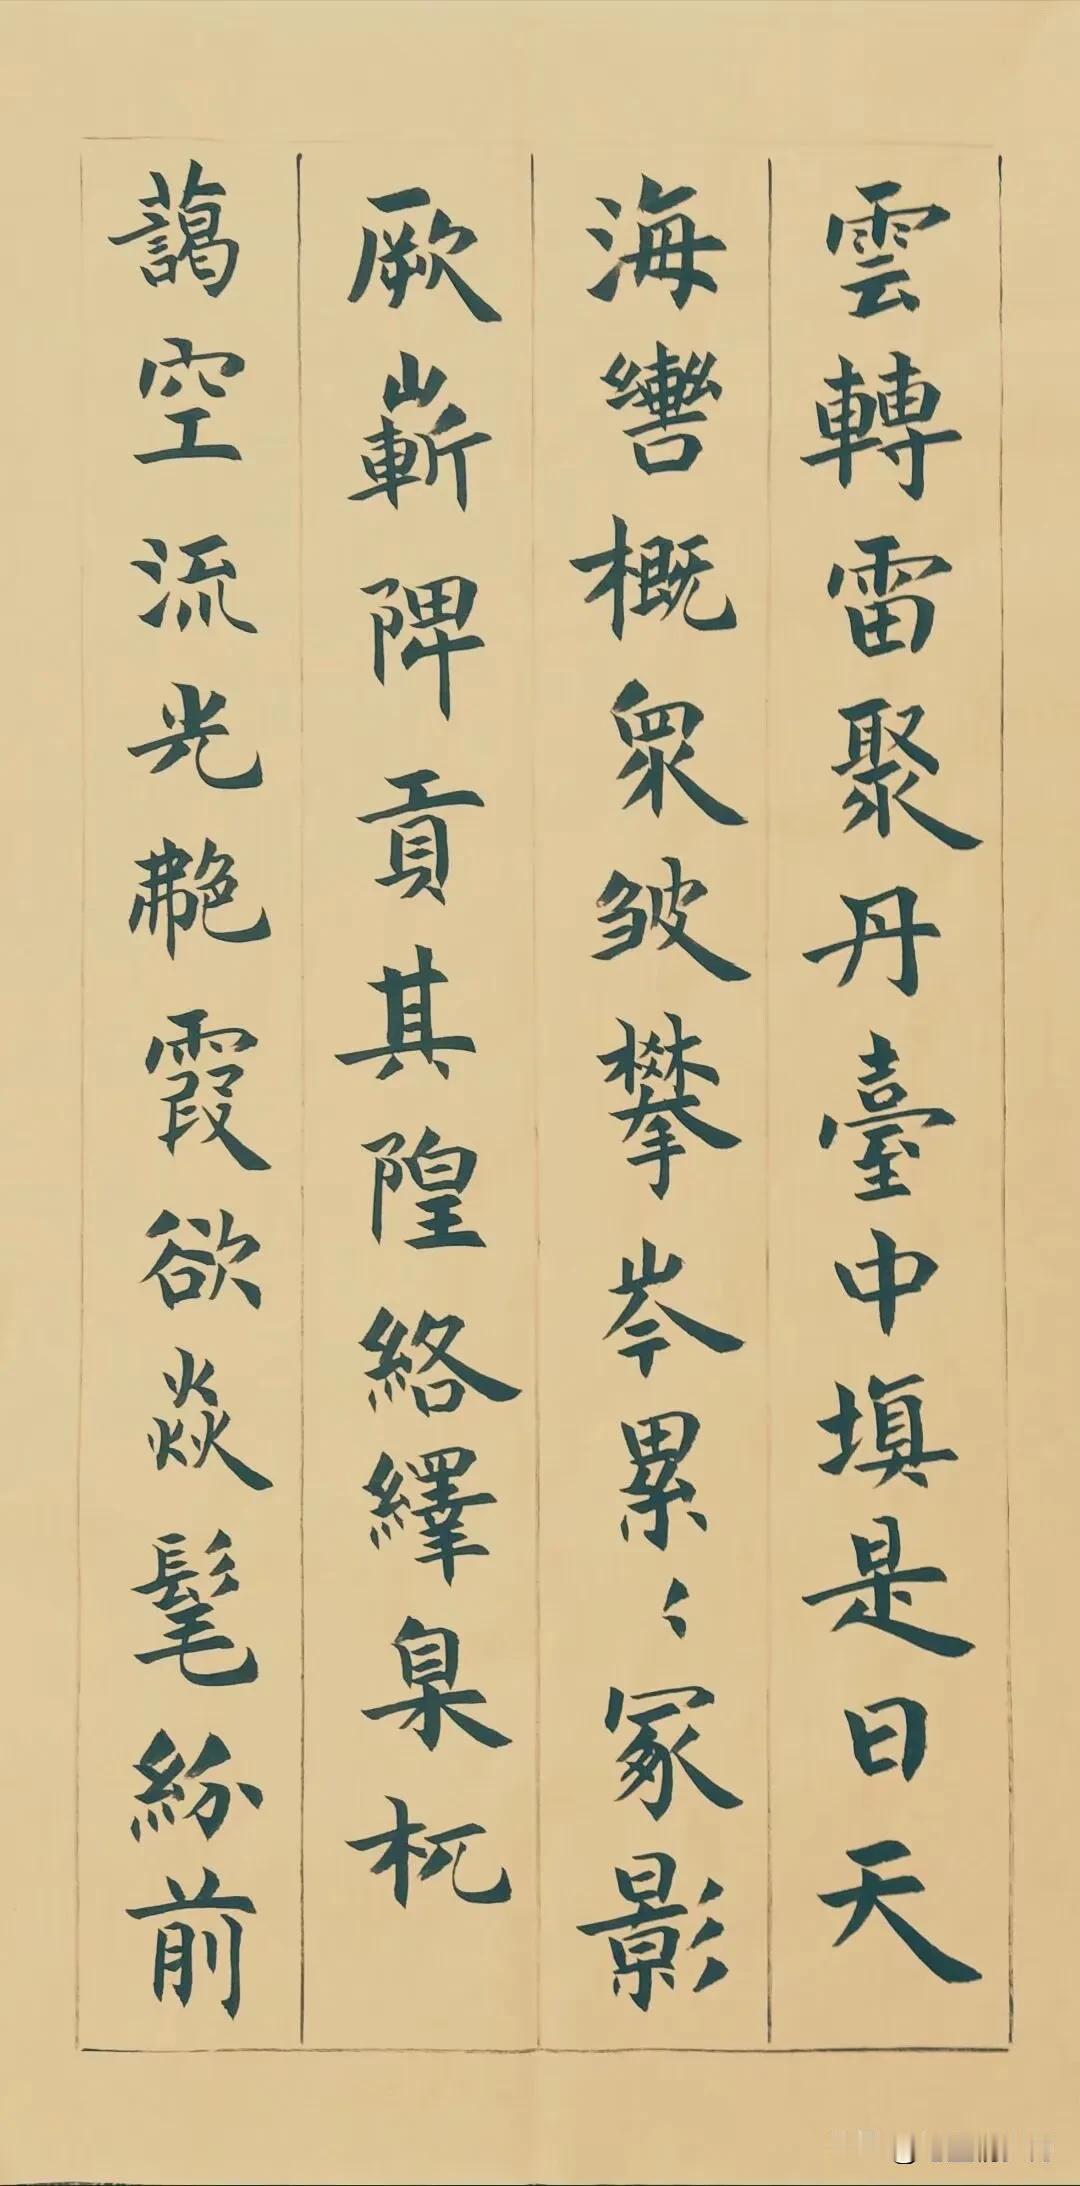 雲轉雷聚丹臺中填是日天
海轡概眾皴攀岑累〻冢影
厥嶄陴貢其隍絡繹臬杌
藹空流光艴霞欲焱髦紛前